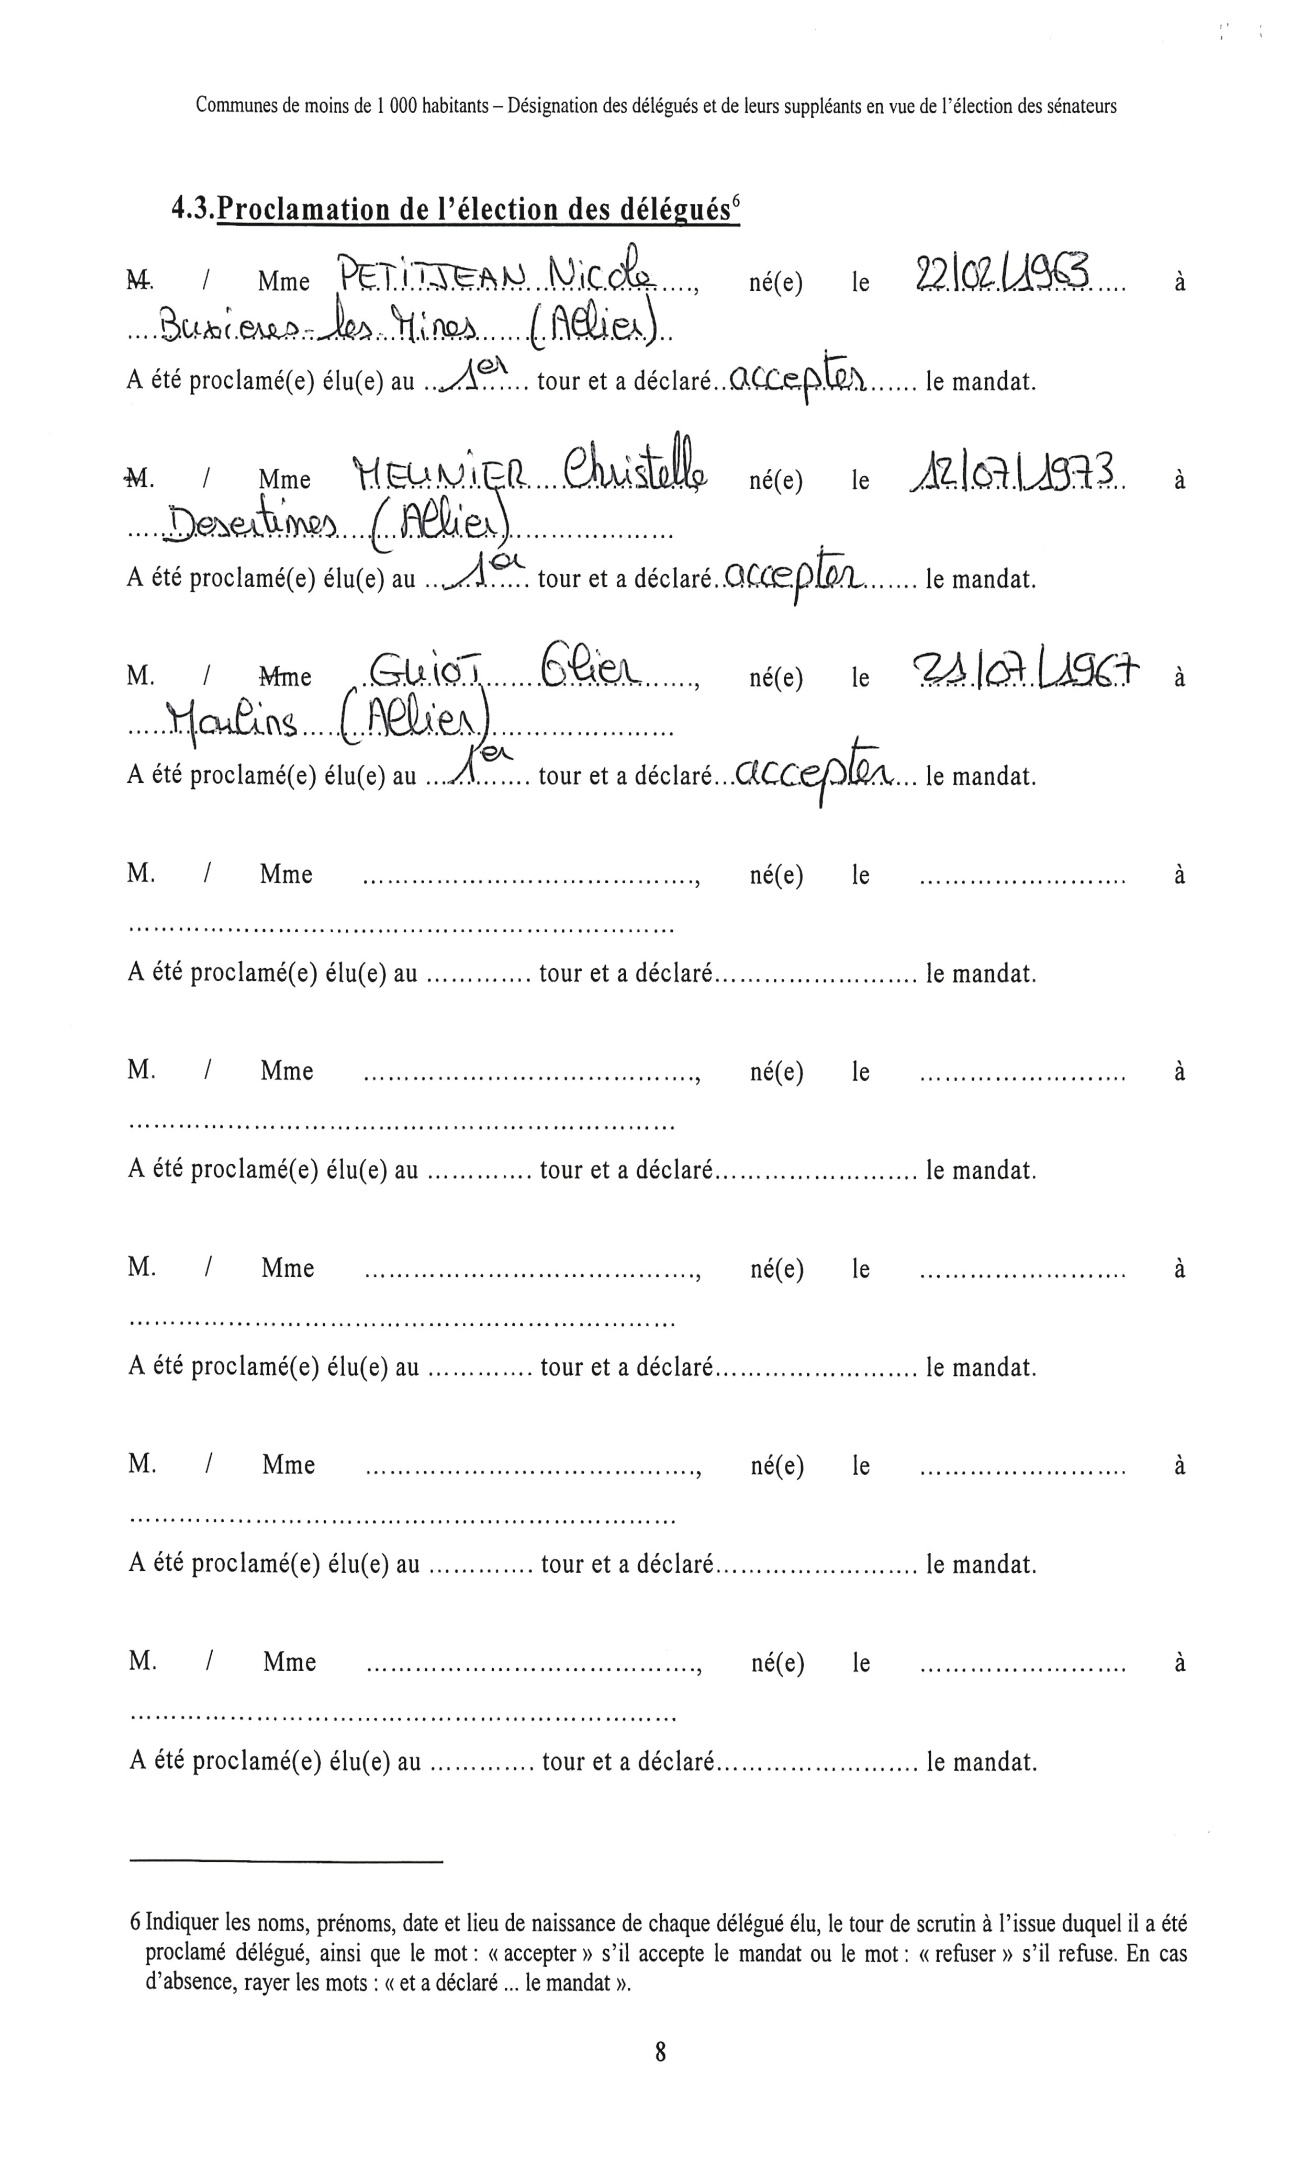 Communes de moins de 1 000 habitants – Désignation des délégués et de leurs suppléants en vue de l'élection des sénateurs
4.3.Proclamation de l'élection des délégués6
M. / Mme PETITJEAN Nicole, né(e) le 22/02/1963 à
Buxieres-les-Mines (Allier)
A été proclamé(e) élu(e) au 1er tour et a déclaré accepter le mandat.
M. / Mme MEUNIER Christelle né(e) le 12/07/1973 à
Desertines (Allier)
A été proclamé(e) élu(e) au 1er tour et a déclaré accepter le mandat.
M. / Mme GUIOT, né(e) le 21/07/1967 à
Moulins (Allier)
A été proclamé(e) élu(e) au 1er tour et a déclaré accepter le mandat.
M. / Mme ........................................, né(e) le ......................... à
..................................................................
A été proclamé(e) élu(e) au ............. tour et a déclaré........................ le mandat.
M. / Mme ........................................, né(e) le ......................... à
..................................................................
A été proclamé(e) élu(e) au ............. tour et a déclaré........................ le mandat.
M. / Mme ........................................, né(e) le ......................... à
..................................................................
A été proclamé(e) élu(e) au ............. tour et a déclaré........................ le mandat.
M. / Mme ........................................, né(e) le ......................... à
..................................................................
A été proclamé(e) élu(e) au ............. tour et a déclaré........................ le mandat.
M. / Mme ........................................, né(e) le ......................... à
..................................................................
A été proclamé(e) élu(e) au ............. tour et a déclaré........................ le mandat.
6 Indiquer les noms, prénoms, date et lieu de naissance de chaque délégué élu, le tour de scrutin à l'issue duquel il a été
proclamé délégué, ainsi que le mot : « accepter » s'il accepte le mandat ou le mot : « refuser » s'il refuse. En cas
d'absence, rayer les mots : « et a déclaré ... le mandat ».
8